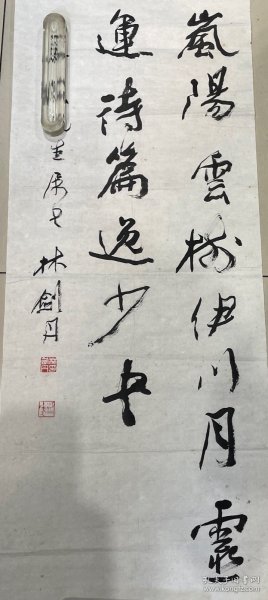 嵐陽雲樹伊川月靈
運詩篇逸少書
生属書林劍丹